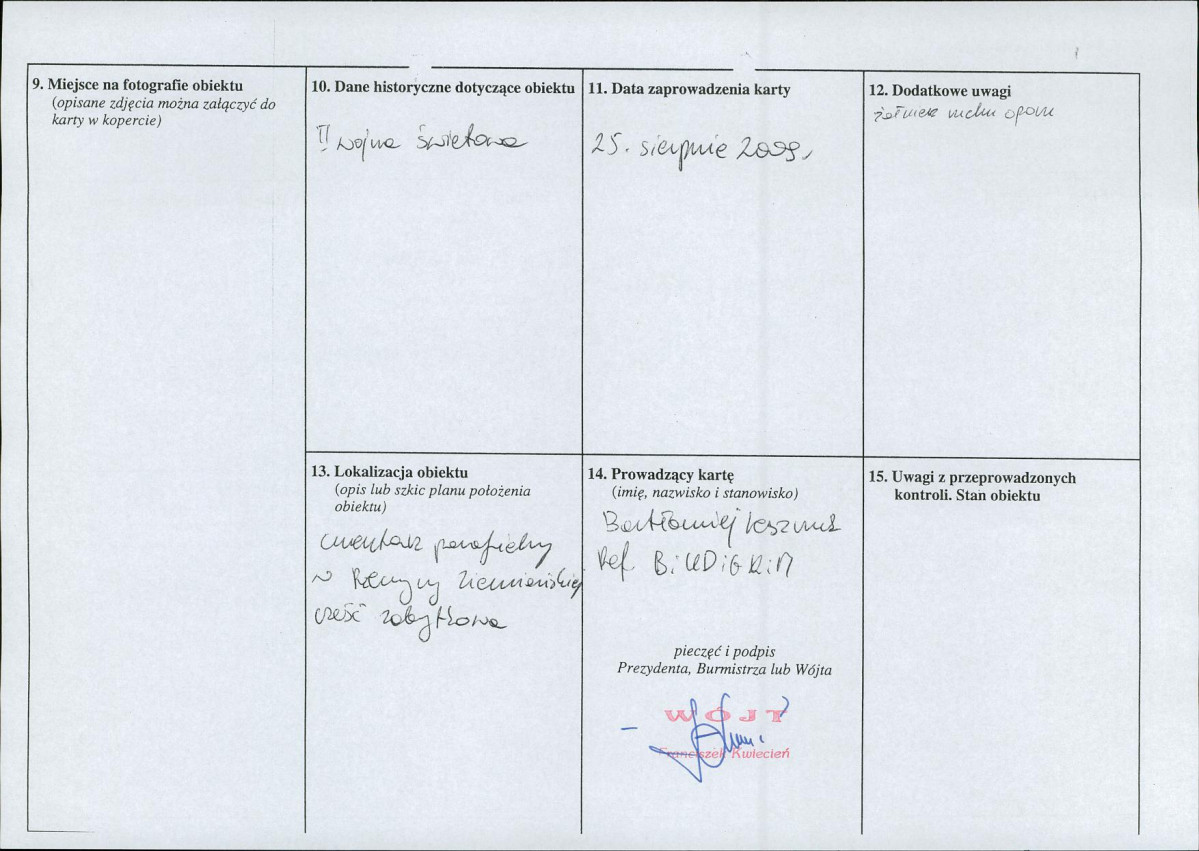 9. Miejsce na fotografie obiektu
(opisane zdjęcia można załączyć do
karty w kopercie)
10. Dane historyczne dotyczące obiektu
II wojna światowa
11. Data zaprowadzenia karty
25. sierpnie 2009r
12. Dodatkowe uwagi
żołnierz ruchu oporu
13. Lokalizacja obiektu
(opis lub szkic planu położenia
obiektu)
cmentarz parafialny
w Ziemiańskiej
część zabytkowa
14. Prowadzący kartę
(imię, nazwisko i stanowisko)
Bartłomiej
Ref.
pieczęć i podpis
Prezydenta, Burmistrza lub Wójta
WÓJT
Franciszek Kwiecień
15. Uwagi z przeprowadzonych
kontroli. Stan obiektu